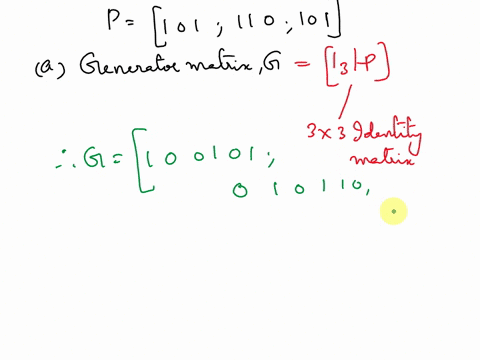 P = [1 0 1 ; 1 1 0 ; 1 0 1]
(a) Generator matrix, G = [I3 | P]
3 x 3 Identity
matrix
∴ G = [1 0 0 1 0 1 ;
0 1 0 1 1 0,